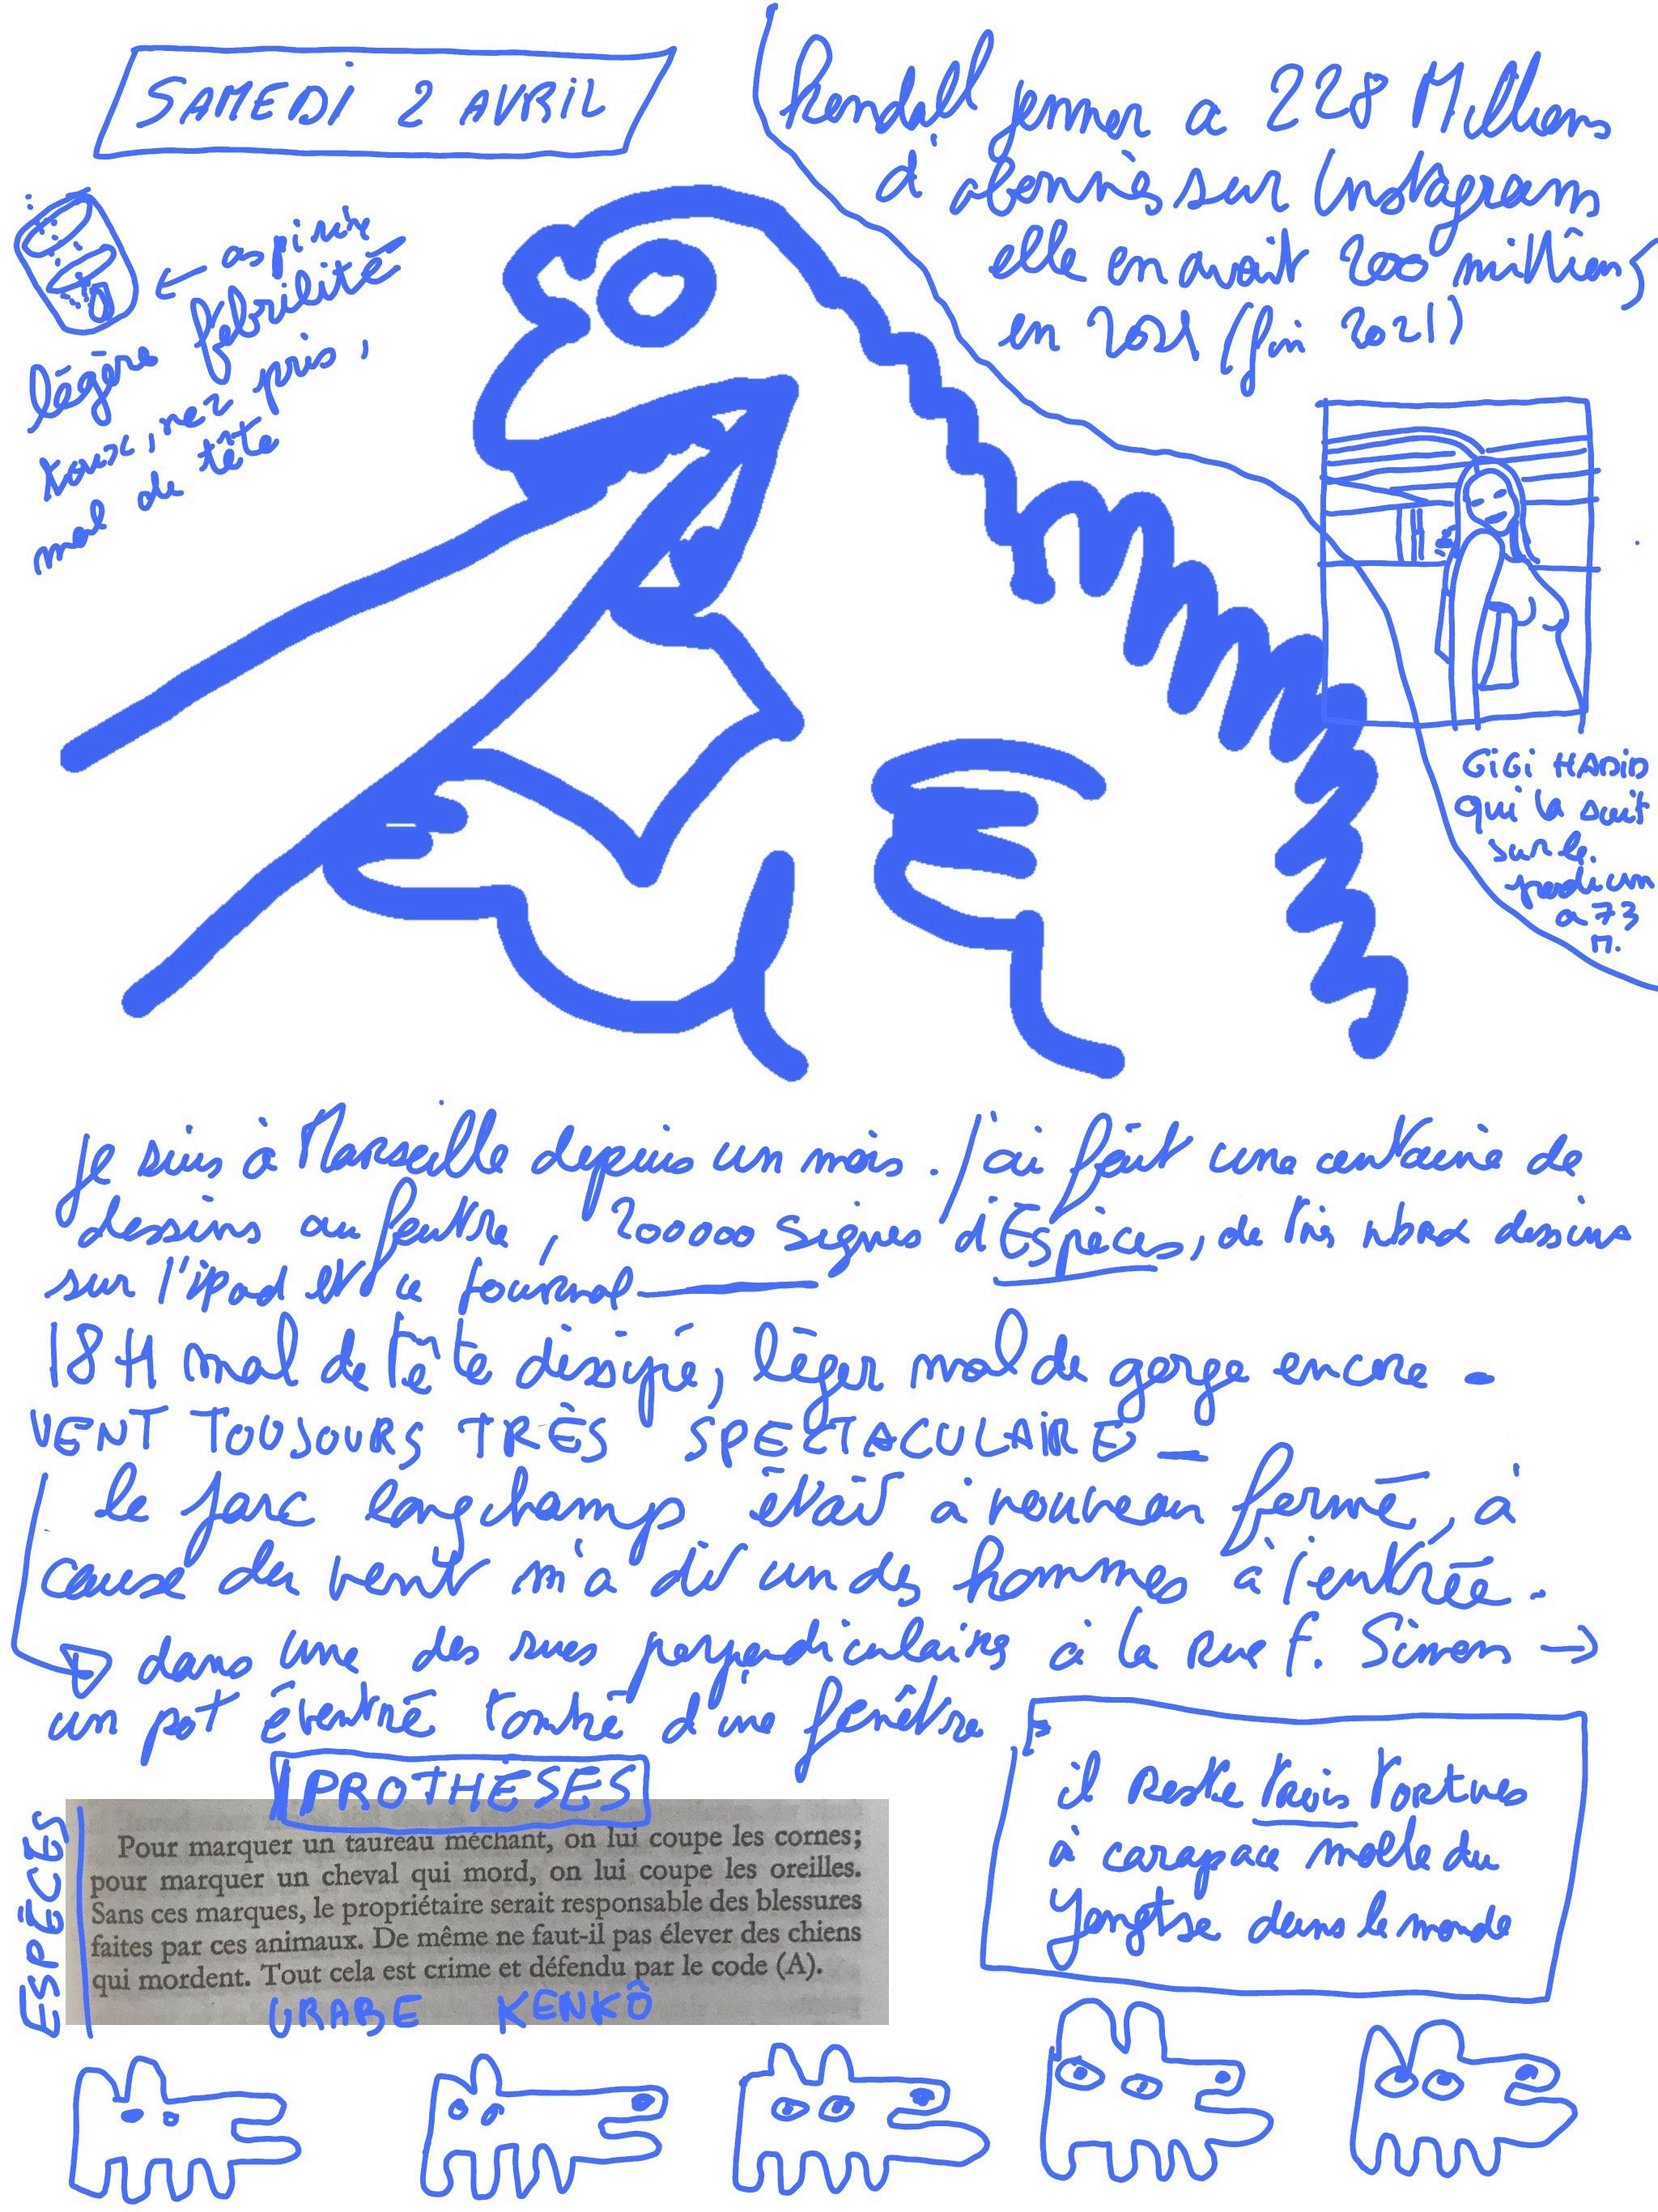 SAMEDI 2 AVRIL
Kendall Jenner a 228 Millions
d'abonnés sur Instagram
elle en avait 200 millions
en 2021 (fin 2021)
aspirine
légère fébrilité
toux, nez pris,
mal de tête
GiGi HADID
qui la suit
sur le
podium
a 73
M.
Je suis à Marseille depuis un mois. J'ai fait une centaine de
dessins au feutre, 200000 signes d'Espèces, de très nbrx dessins
sur l'ipad et ce journal
18H mal de tête dissipé, léger mal de gorge encore -
VENT TOUJOURS TRÈS SPECTACULAIRE -
le parc longchamp était à nouveau fermé, à
cause du vent m'a dit un des hommes à l'entrée -
dans une des rues perpendiculaires à la Rue F. Simon →
un pot éventré tombé d'une fenêtre
il Reste trois tortues
à carapace molle du
Yangtse dans le monde
PROTHÈSES
ESPÈCES
Pour marquer un taureau méchant, on lui coupe les cornes;
pour marquer un cheval qui mord, on lui coupe les oreilles.
Sans ces marques, le propriétaire serait responsable des blessures
faites par ces animaux. De même ne faut-il pas élever des chiens
qui mordent. Tout cela est crime et défendu par le code (A).
URABE KENKÔ